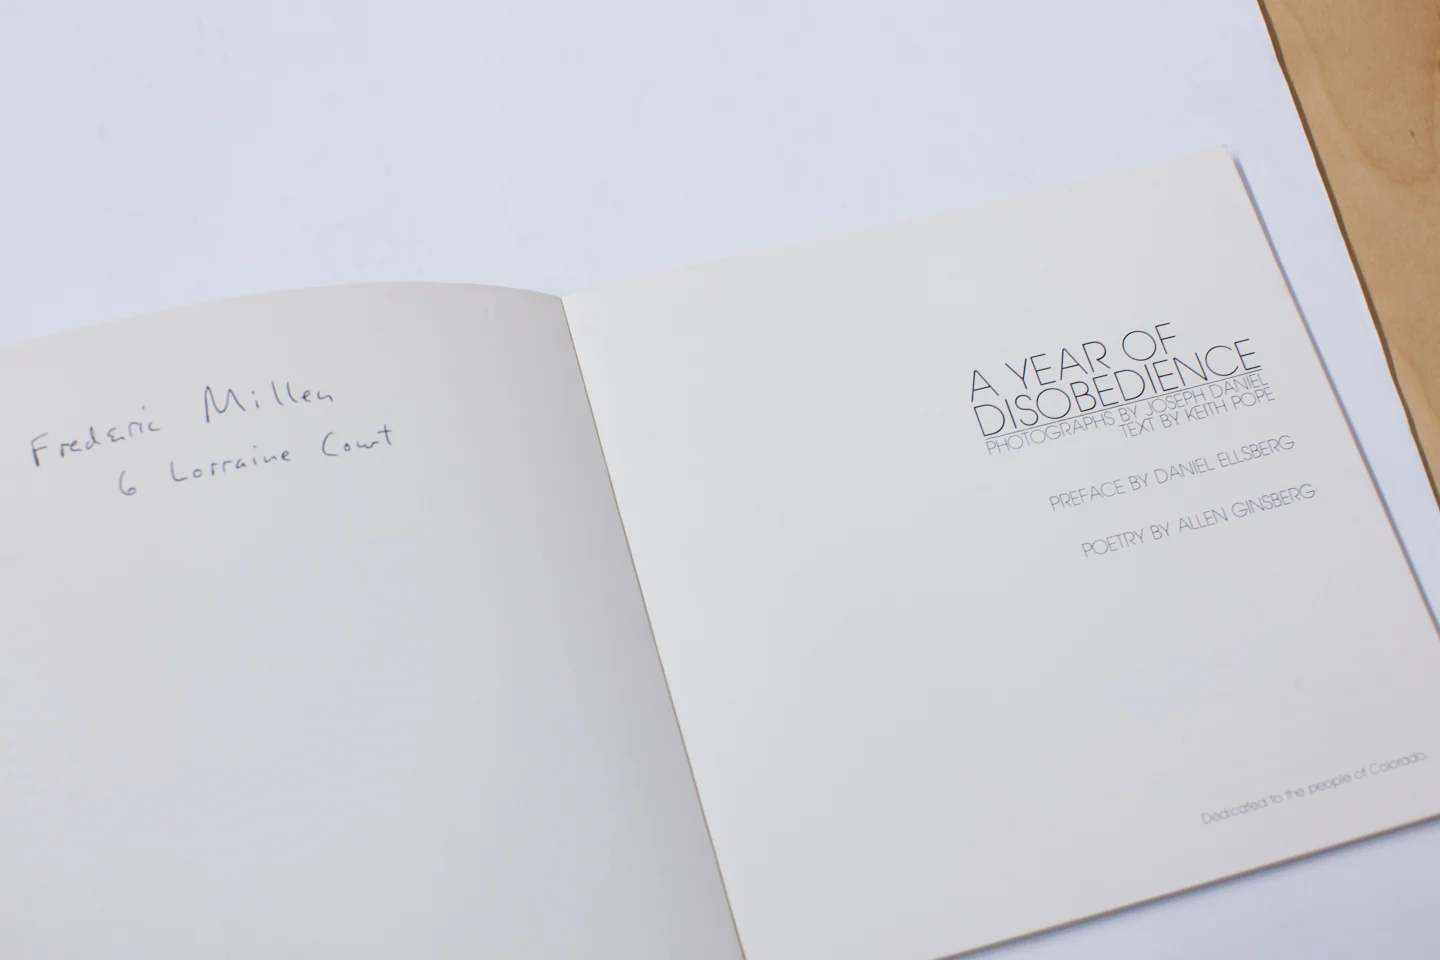 Frederic Millen
6 Lorraine Court
A YEAR OF
DISOBEDIENCE
PHOTOGRAPHS BY JOSEPH DANIEL
TEXT BY KEITH POPE
PREFACE BY DANIEL ELLSBERG
POETRY BY ALLEN GINSBERG
Dedicated to the people of Colorado.